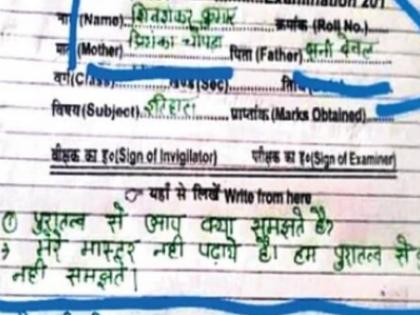 Examination 201
ना (Name) शिवशंकर कुमार क्रमांक (Roll No.)
मात (Mother) प्रियंका चोपड़ा पिता (Father) सनी देवल
वर्ग (Class) खण्ड (Sec) तिथि
विषय (Subject) इतिहास प्राप्तांक (Marks Obtained)
वीक्षक का ह० (Sign of Invigilator) परीक्षक का ह० (Sign of Examiner)
यहाँ से लिखें Write from here
① पुरातत्व से आप क्या समझते है?
→ मेरे मास्टर नही पढ़ाये है। हम पुरातत्व से
नही समझते।